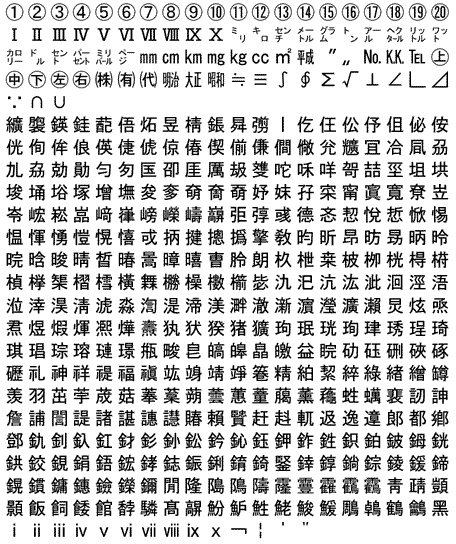 ①②③④⑤⑥⑦⑧⑨⑩⑪⑫⑬⑭⑮⑯⑰⑱⑲⑳
ⅠⅡⅢⅣⅤⅥⅦⅧⅨⅩ㍉㌔㌢㍍㌘㌧㌃㌶㍑㍗
㌍㌦㌣㌫㍊㌻㎜㎝㎞㎎㎏㏄㎡㍻〝〟№㏍℡㊤
㊥㊦㊧㊨㈱㈲㈹㍾㍽㍼≒≡∫∮∑√⊥∠∟⊿
∵∩∪
纊褜鍈銈蓜俉炻昱棈鋹曻彅丨仡仼伀伃伹佖侒
侊侚侔俍偀倢俿倞偆偰偂傔僴僘兊兤冝冾凬刕
劜劦勀勛匀匇匤卲厓厲叝﨎咜咊咩哿喆坙坥垬
埈埇﨏塚增墲夋奓奛奝奣妤妺孖寀甯寘寬尞岦
岺峵崧嵓﨑嵂嵭嶸嶹巐弡弴彧德忞恝悅悊惞惕
愠惲愑愷愰憘戓抦揵摠撝擎敎昀昕昻昉昮昞昤
晥晗晙晴晳暙暠暲暿曺朎朗杦枻桒柀栁桄棏﨓
楨﨔榘槢樰橫橆橳橾櫢櫤毖氿汜沆汯泚洄涇浯
涖涬淏淸淲淼渹湜渧渼溿澈澵濵瀅瀇瀨炅炫焏
焄煜煆煇凞燁燾犱犾猤猪獷玽珉珖珣珒琇珵琦
琪琩琮瑢璉璟甁畯皂皜皞皛皦益睆劯砡硎硤硺
礰礼神祥禔福禛竑竧靖竫箞精絈絜綷綠緖繒罇
羡羽茁荢荿菇菶葈蒴蕓蕙蕫﨟薰蘒﨡蠇裵訒訷
詹誧誾諟諸諶譓譿賰賴贒赶﨣軏﨤逸遧郞都鄕
鄧釚釗釞釭釮釤釥鈆鈐鈊鈺鉀鈼鉎鉙鉑鈹鉧銧
鉷鉸鋧鋗鋙鋐﨧鋕鋠鋓錥錡鋻﨨錞鋿錝錂鍰鍗
鎤鏆鏞鏸鐱鑅鑈閒隆﨩隝隯霳霻靃靍靏靑靕顗
顥飯飼餧館馞驎髙髜魵魲鮏鮱鮻鰀鵰鵫鶴鸙黑
ⅰⅱⅲⅳⅴⅵⅶⅷⅸⅹ￢￤＇＂